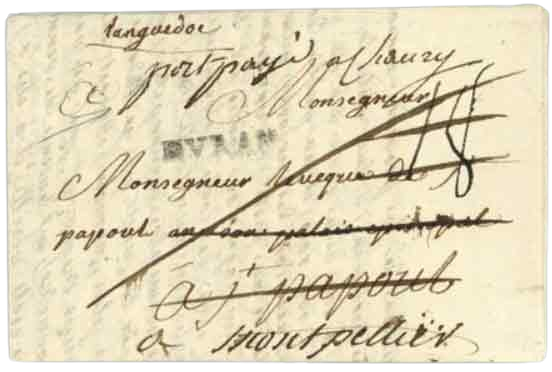 languedoc
port payé a Chaury
A Monsegneur
18
EVRAN
Monsegneur leveque de
papoul en son palais episcopal
à St papoul
a Montpellier